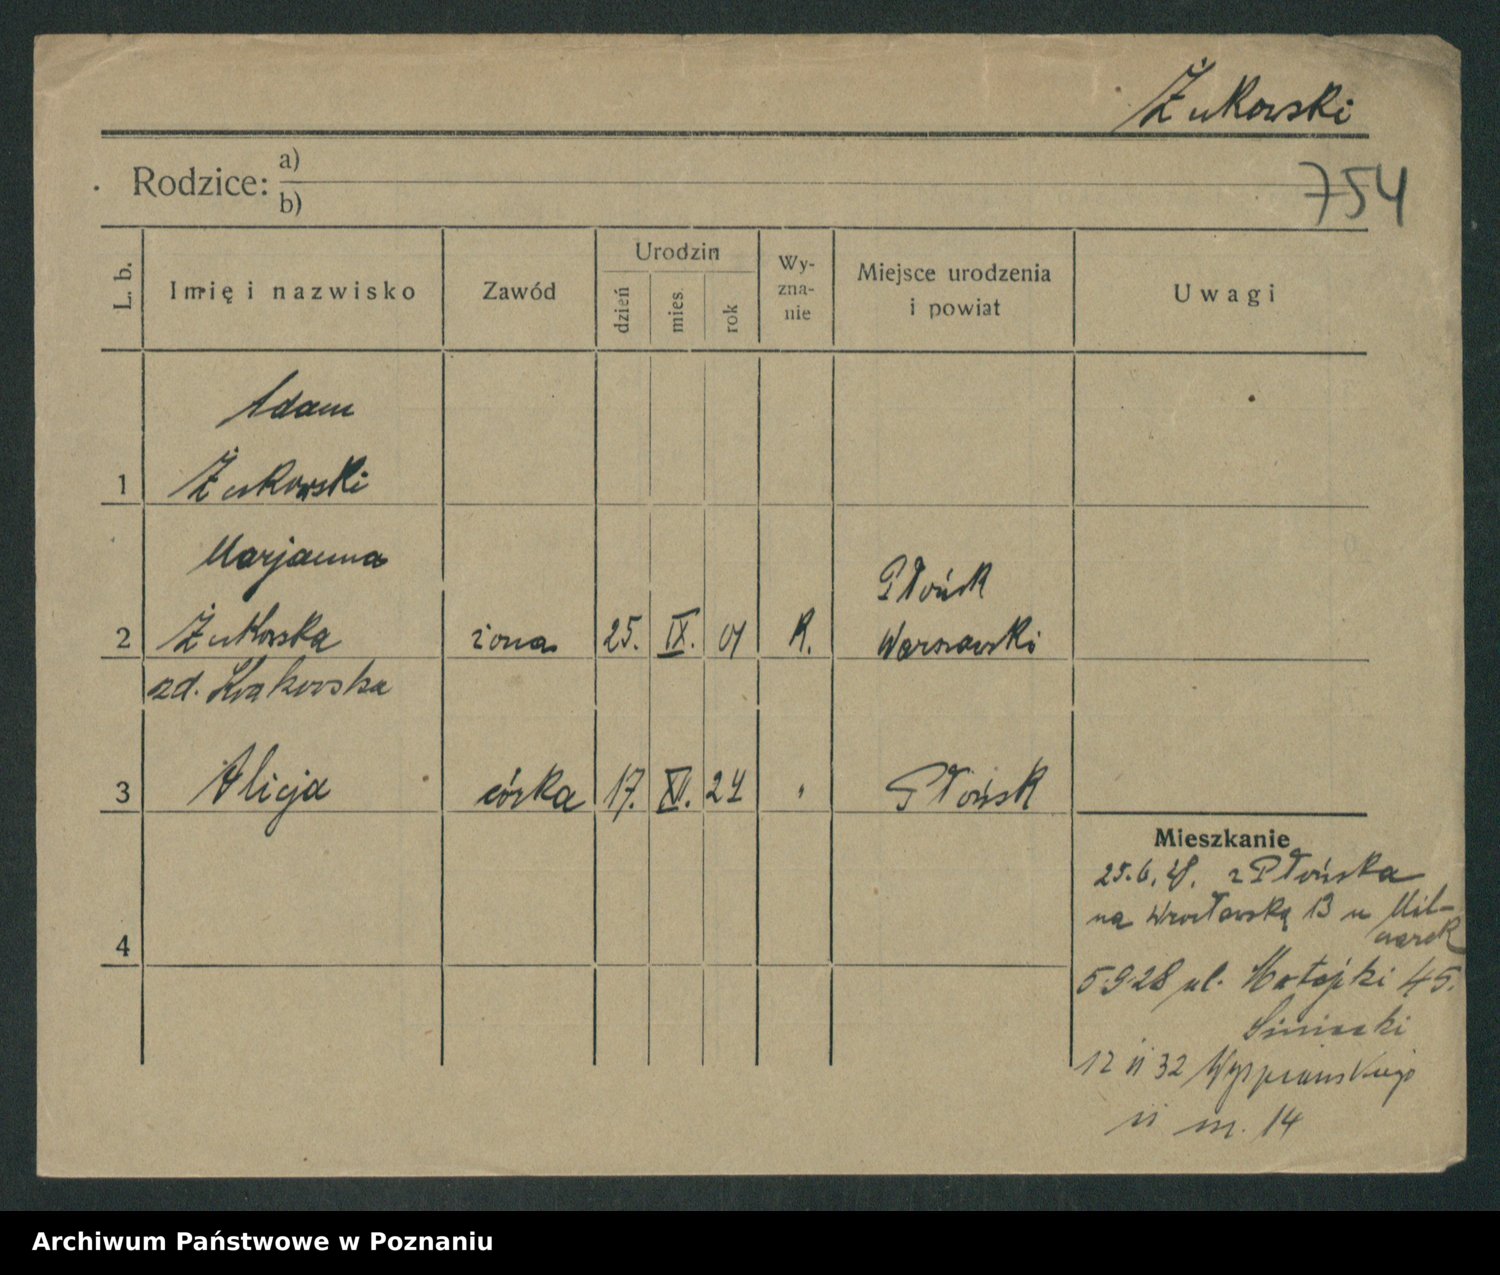 Żukowski
Rodzice: a)
b)
754
L. b.
Imię i nazwisko
Zawód
Urodzin
dzień
mies.
rok
Wy-
zna-
nie
Miejsce urodzenia
i powiat
Uwagi
Adam
1 Żukowski
Marjanna
Płońsk
2 Żukowska żona 25. IX. 01 R. Warszawski
zd. Krakowska
3 Alicja córka 17. XI. 24 " Płońsk
4
Mieszkanie
25.6.28. z Płońska
na Wrocławską 13 u
5 9 28 ul. Matejki 45.
12 II 32 Wyspiańskiego
m. 14
Archiwum Państwowe w Poznaniu